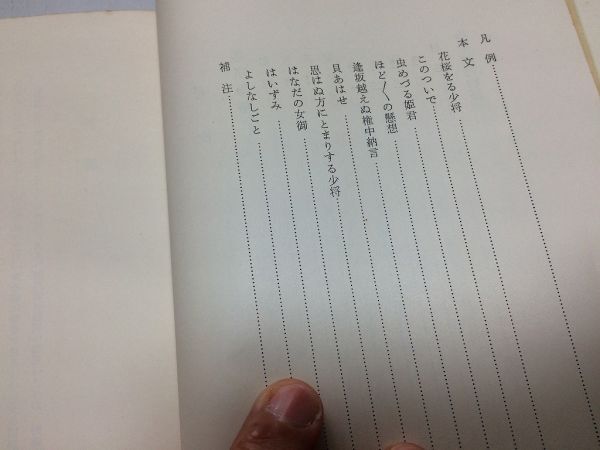 凡例
本文
花桜をる少将
このついで
虫めづる姫君
ほど〳〵の懸想
逢坂越えぬ権中納言
貝あはせ
思はぬ方にとまりする少将
はなだの女御
はいずみ
よしなしごと
補注